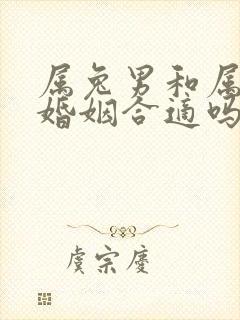 属兔男和属
婚姻合适吗
虞宗庆